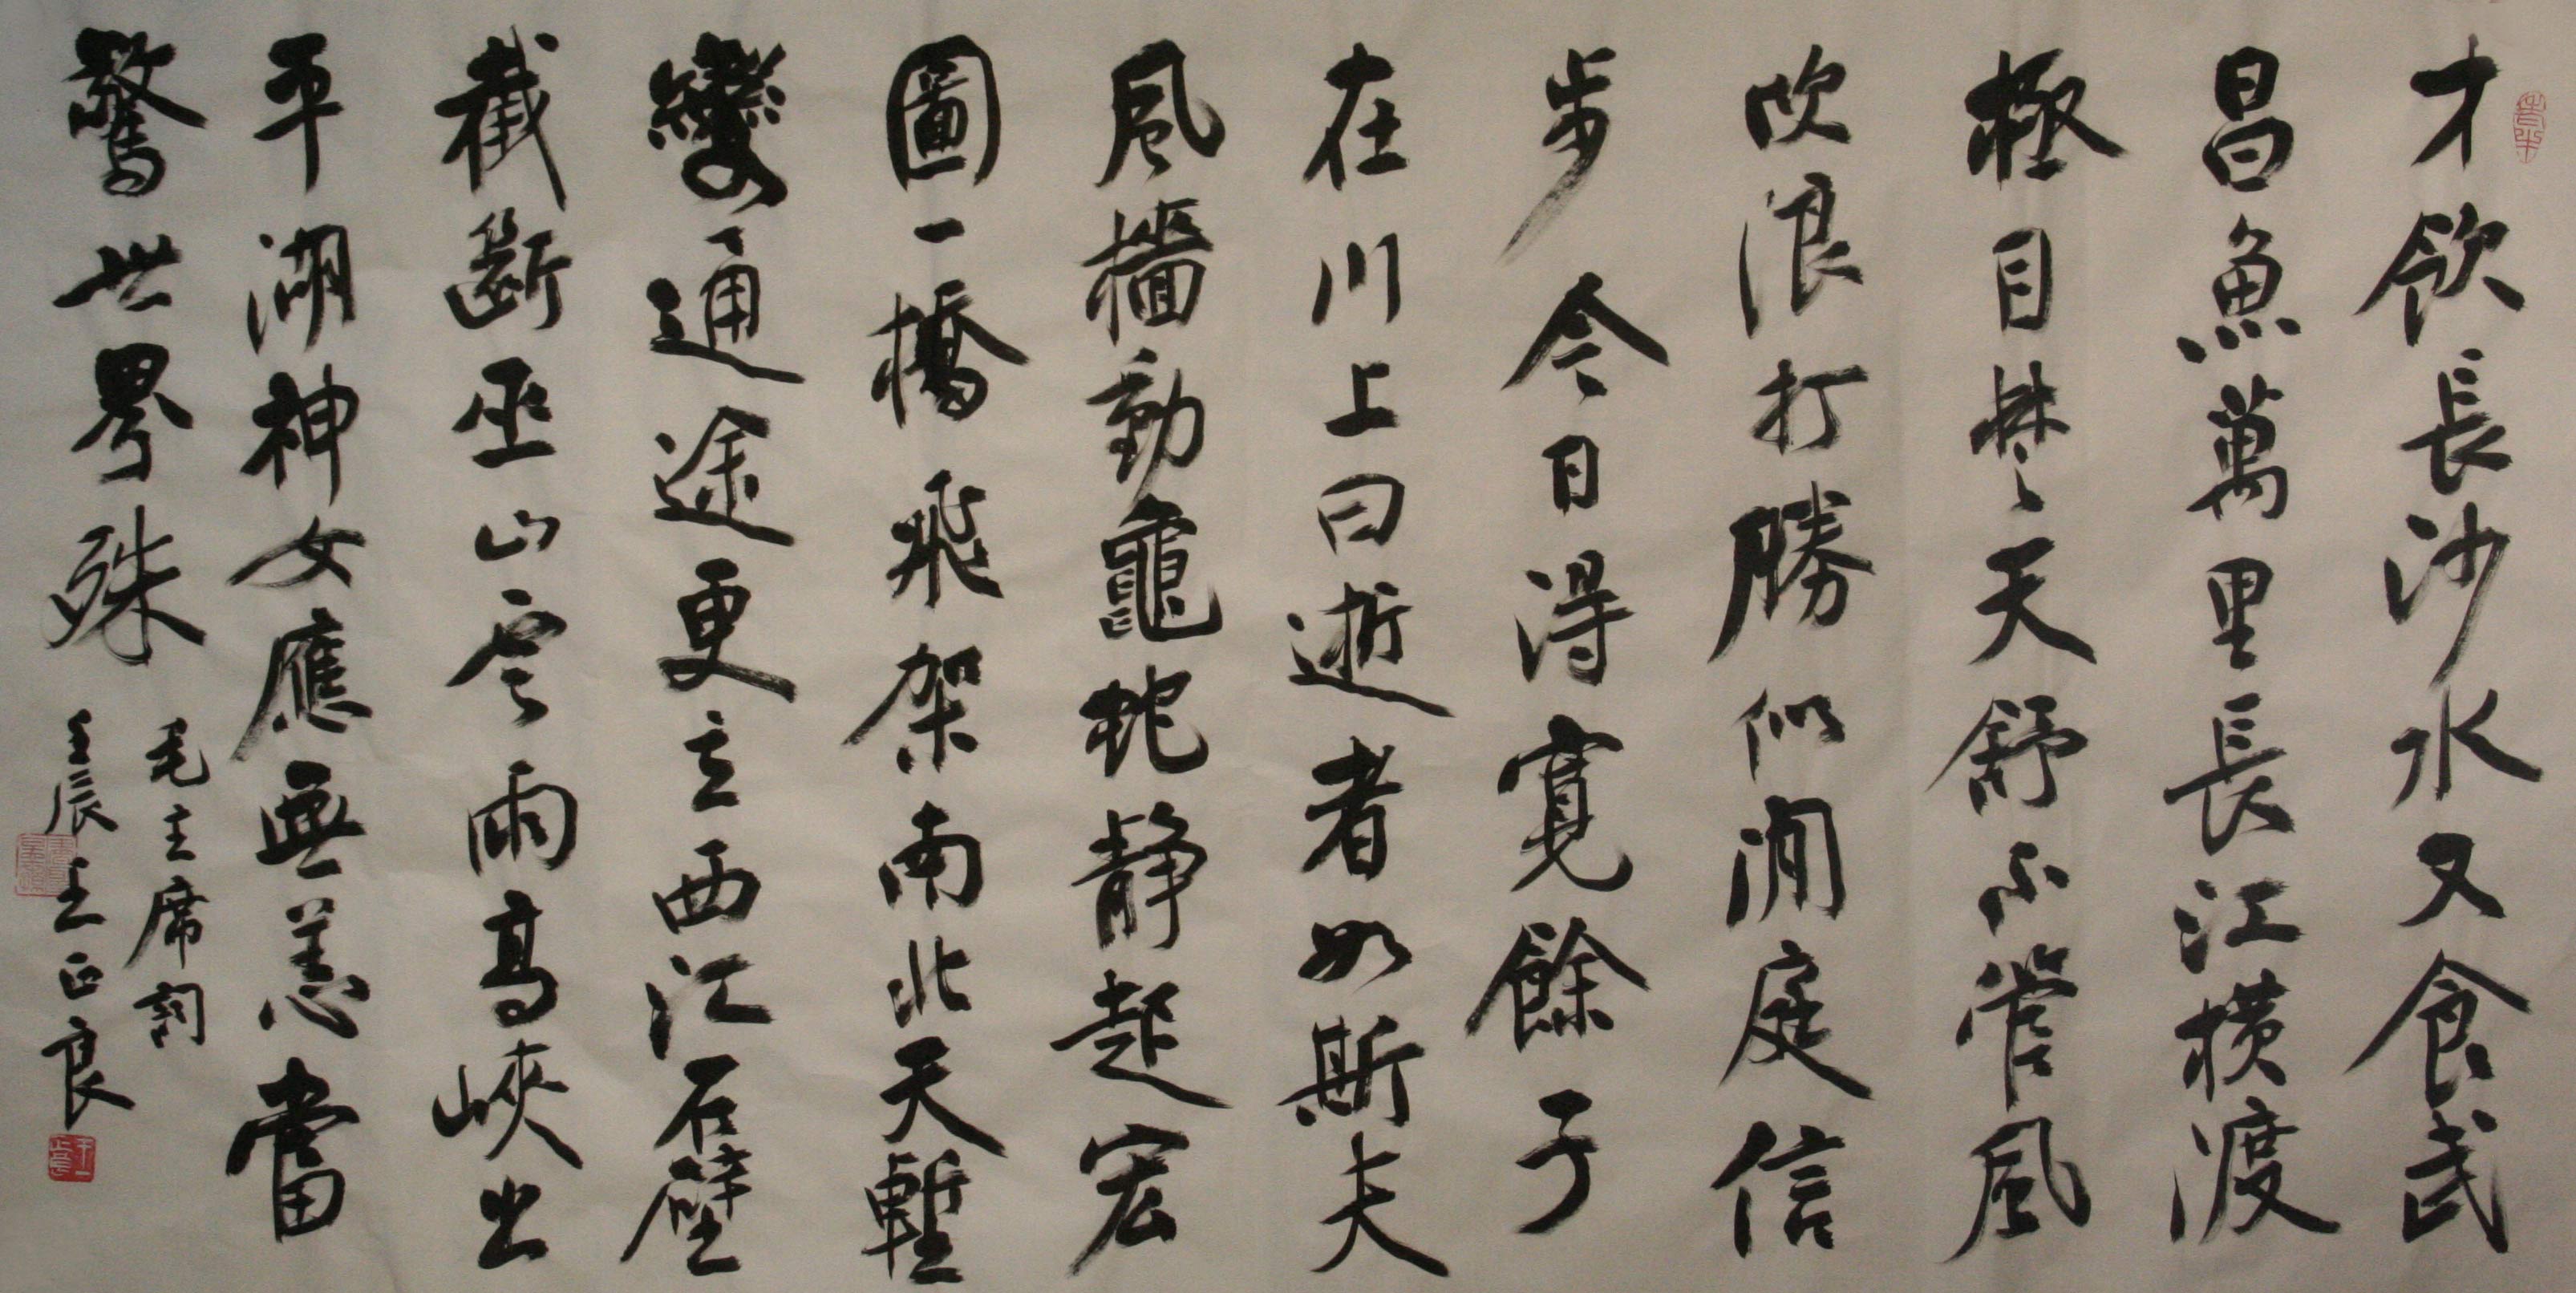 才飲長沙水又食武
昌魚萬里長江橫渡
極目楚天舒不管風
吹浪打勝似閒庭信
步今日得寬餘子
在川上曰逝者如斯夫
風檣動龜蛇靜起宏
圖一橋飛架南北天塹
變通途更立西江石壁
截斷巫山雲雨高峽出
平湖神女應無恙當
驚世界殊
毛主席詞
壬辰王正良